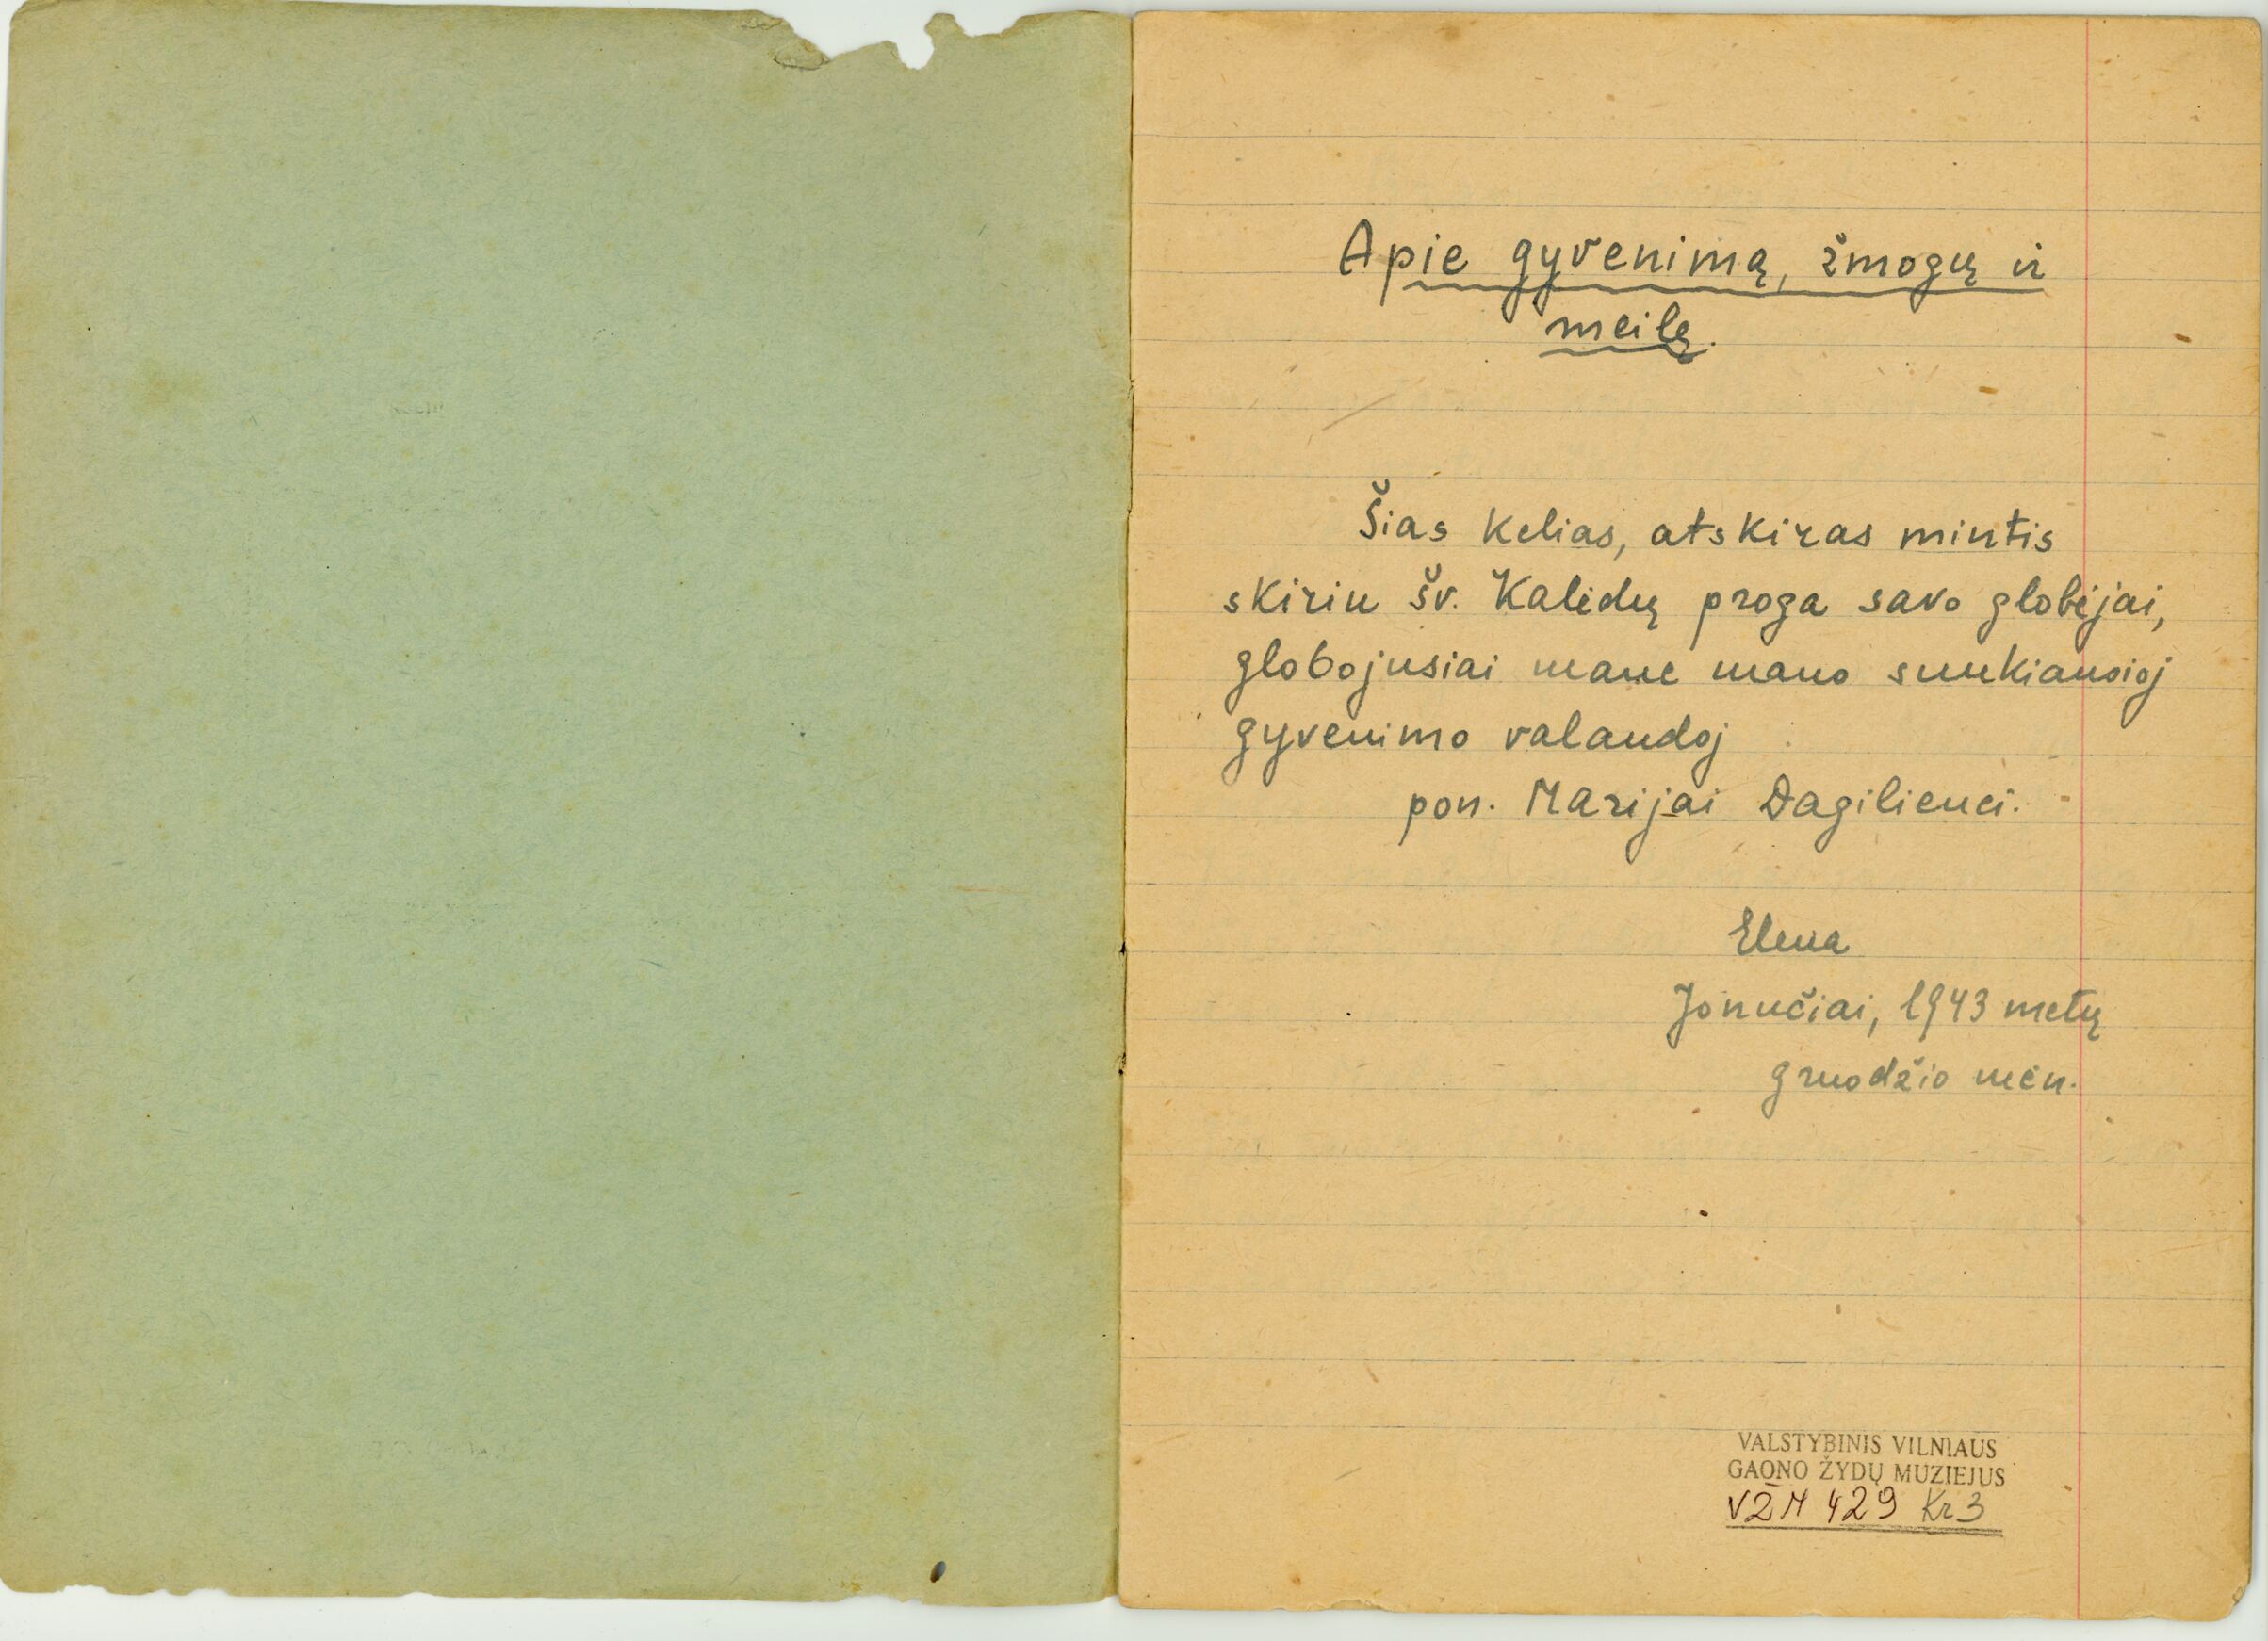 Apie gyvenimą, žmogų ir
meilę.
Šias kelias, atskiras mintis
skiriu šv. Kalėdų proga savo globėjai,
globojusiai mane mano sunkiausioj
gyvenimo valandoj
pon. Marijai Dagilienei.
Elena
Jonučiai, 1943 metų
gruodžio mėn.
VALSTYBINIS VILNIAUS
GAONO ŽYDŲ MUZIEJUS
VŽM 429 Kr3